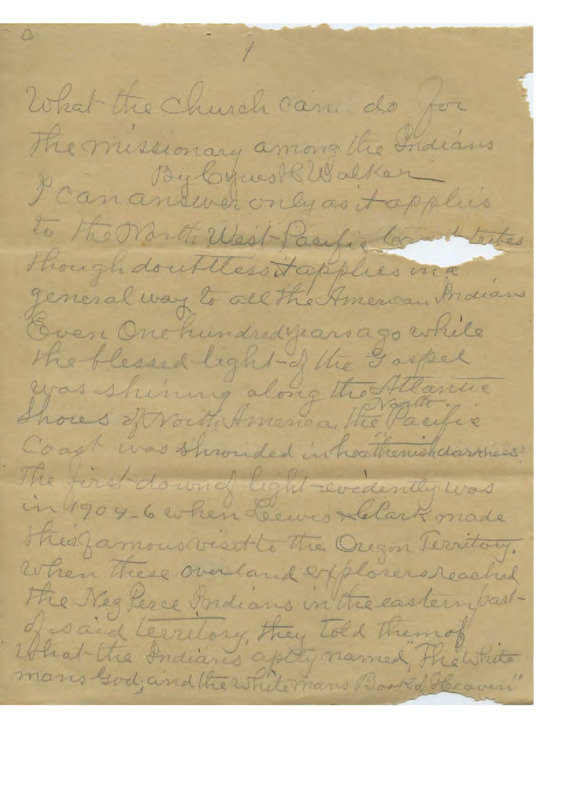 1
What the Church can do for
the missionary among the Indians
By Cyrus H Walker
I can answer only as it applies
to the North West Pacific tribes
though doubtless it applies in a
general way to all the American Indians
Even One hundred years ago while
the blessed light of the Gospel
was shining along the Atlantic
Shores of North America, the North Pacific
Coast was shrouded in heathenish darkness
The first down of light evidently was
in 1904-6 when Lewis & Clark made
their famous visit to the Oregon Territory.
When these overland explorers reached
the Nez Perce Indians in the eastern part
of said territory, they told them of
What the Indians aptly named, "The White
mans God, and the White mans Book of Heaven"